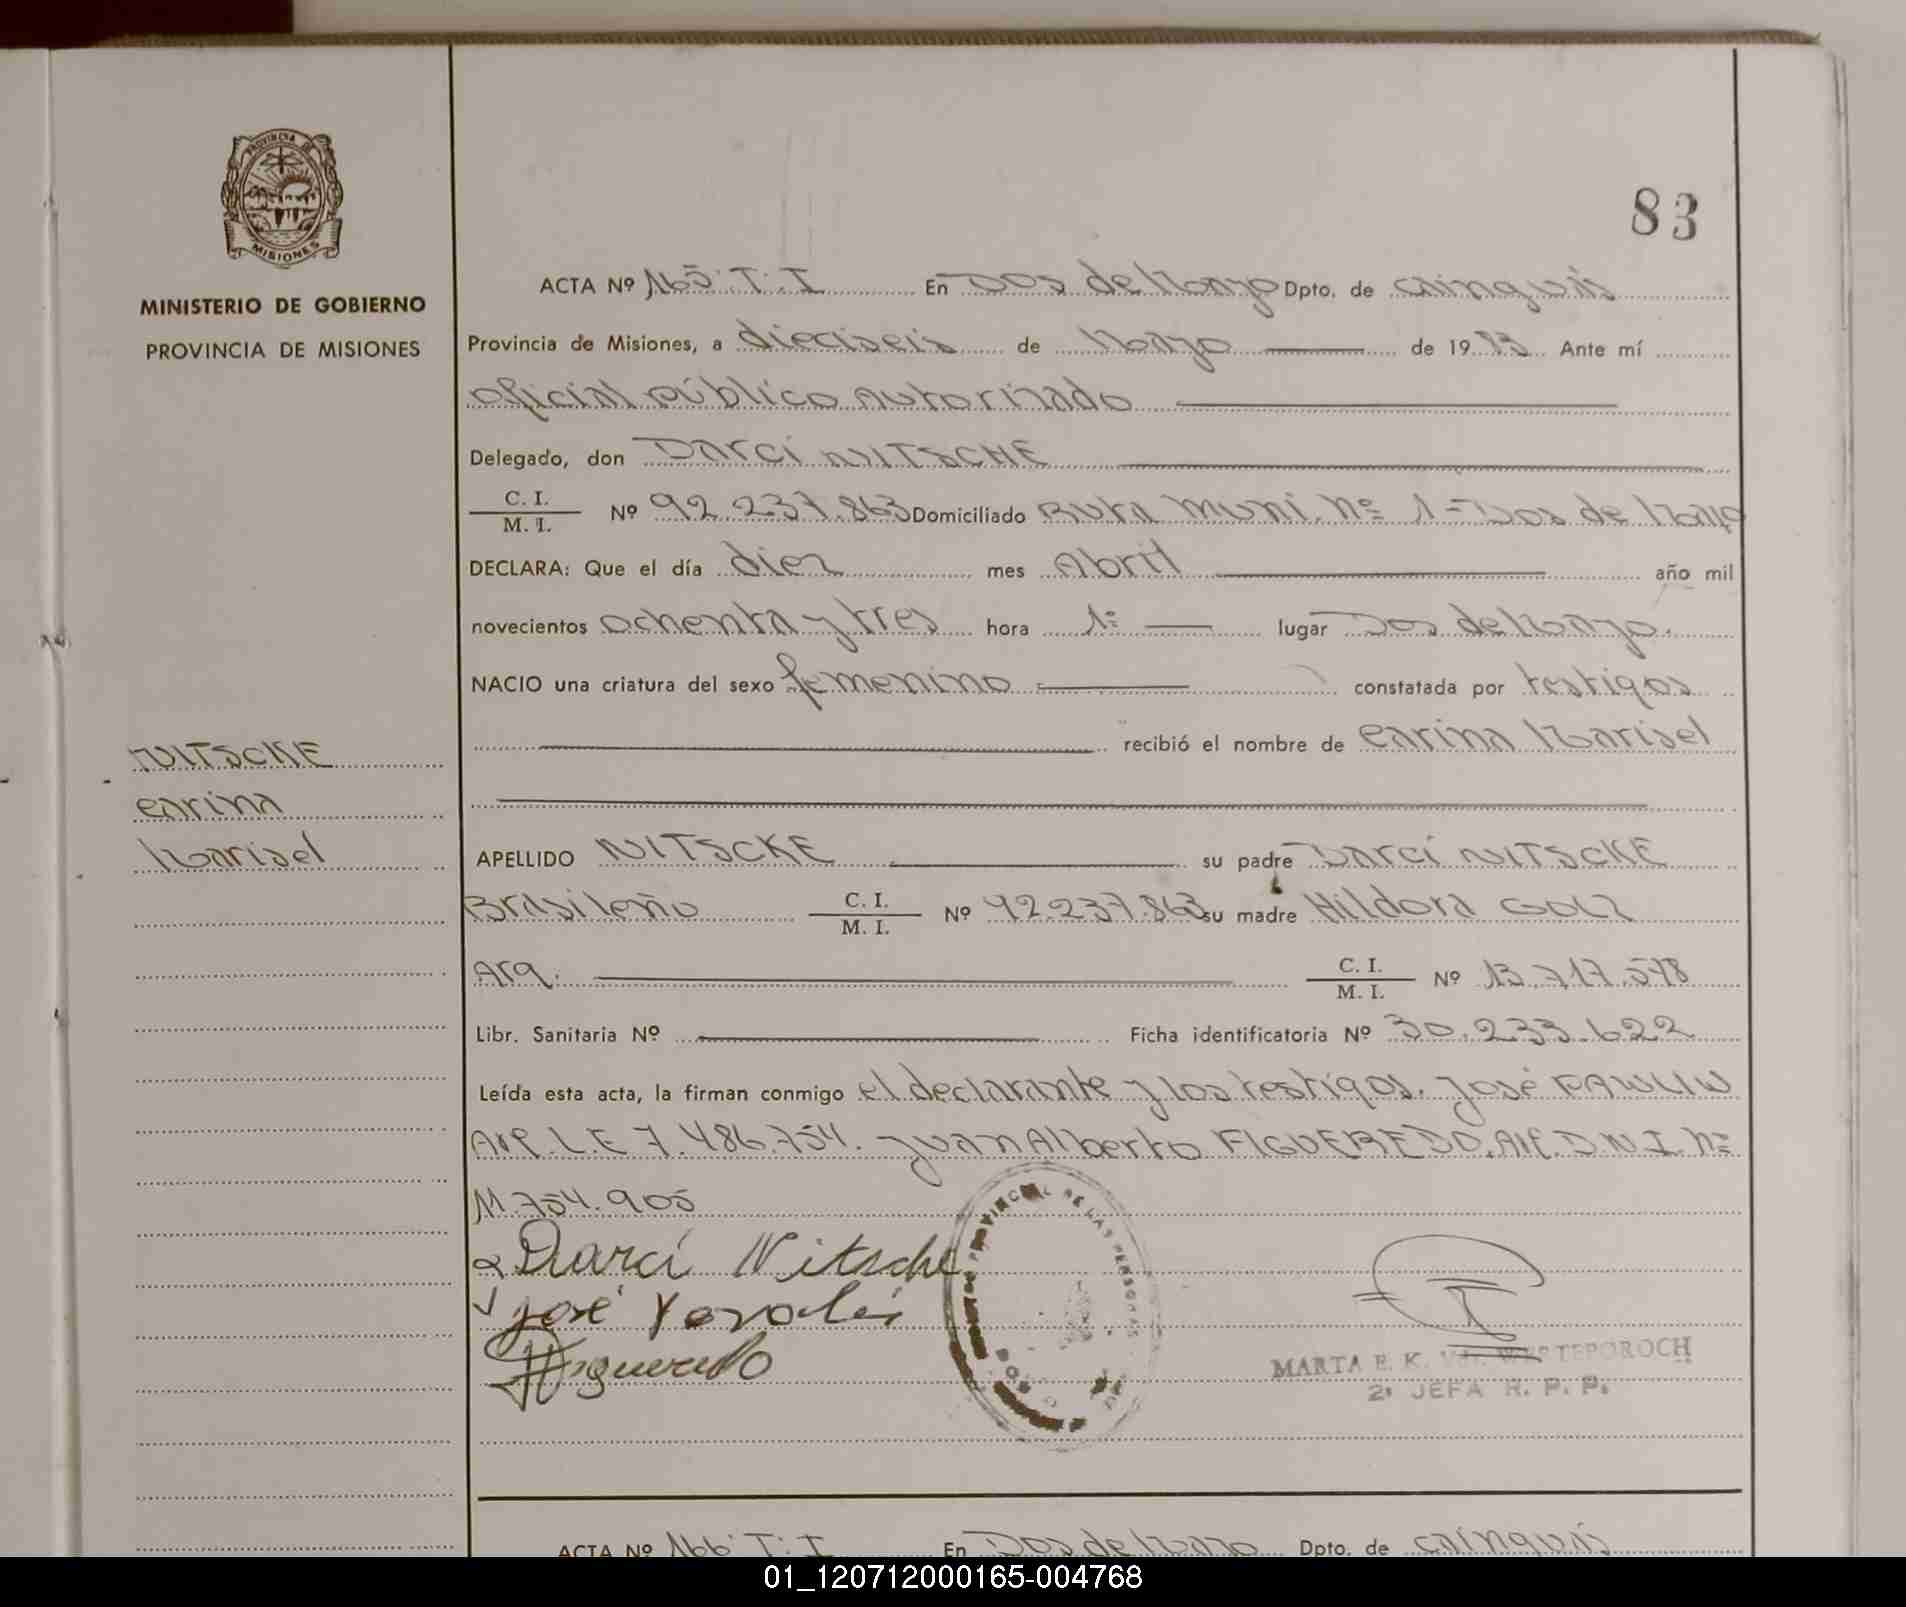 PROVINCIA DE
MISIONES
MINISTERIO DE GOBIERNO
PROVINCIA DE MISIONES
83
ACTA Nº 165. T. I En Dos de Mayo Dpto. de Cainguás
Provincia de Misiones, a dieciseis de Mayo de 1983 Ante mí
oficial público autorizado
Delegado, don Darci NITSCHE
C. I.
M. I. Nº 92.237.863 Domiciliado Ruta Muni. Nº 1 = Dos de Mayo
DECLARA: Que el día diez mes Abril año mil
novecientos ochenta y tres hora 1º lugar Dos de Mayo.
NACIO una criatura del sexo femenino constatada por testigos
recibió el nombre de Carina Marisel
NITSCKE
Carina
Marisel
APELLIDO NITSCKE su padre Darci NITSCKE
Brasileño C. I.
M. I. Nº 92.237.863 su madre Hildora GOLZ
Arg. C. I.
M. I. Nº 13.717.578
Libr. Sanitaria Nº Ficha identificatoria Nº 30.233.622
Leída esta acta, la firman conmigo el declarante y los testigos. José
Arg. L.E 7.486.754. Juan Alberto FIGUEREDO. Arg. D.N.I. Nº
11.754.905
Darci Nitsche
José
Figueredo
PROVINCIAL DE LAS PERSONAS
MARTA E. K. WESTEPOROCH
2ª JEFA R. P. P.
ACTA Nº 166. T. I En Dos de Mayo Dpto. de Cainguás
01_120712000165-004768